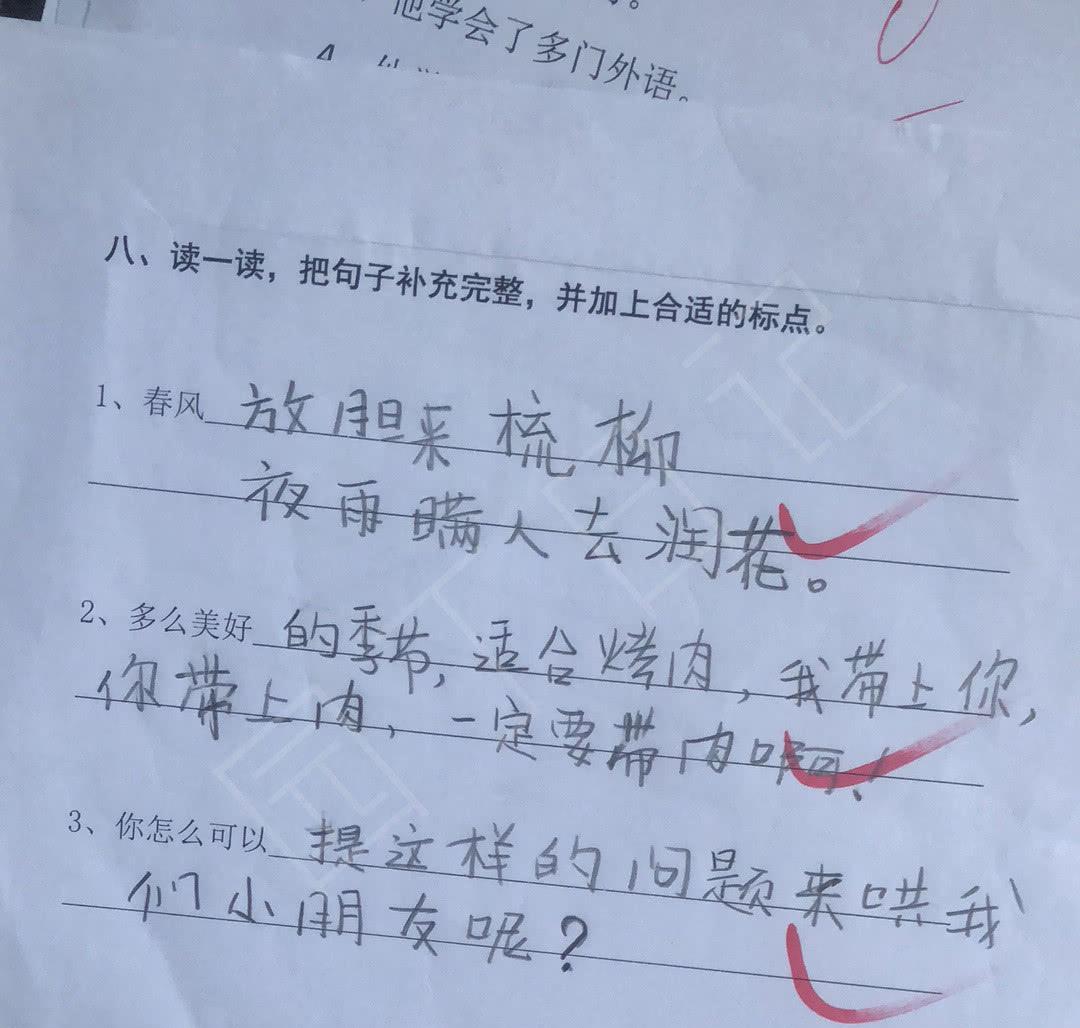 他学会了多门外语。
4、
八、读一读，把句子补充完整，并加上合适的标点。
1、春风放胆来梳柳
夜雨瞒人去润花。
2、多么美好的季节，适合烤肉，我带上你，
你带上肉、一定要带肉啊！
3、你怎么可以提这样的问题来哄我
们小朋友呢？